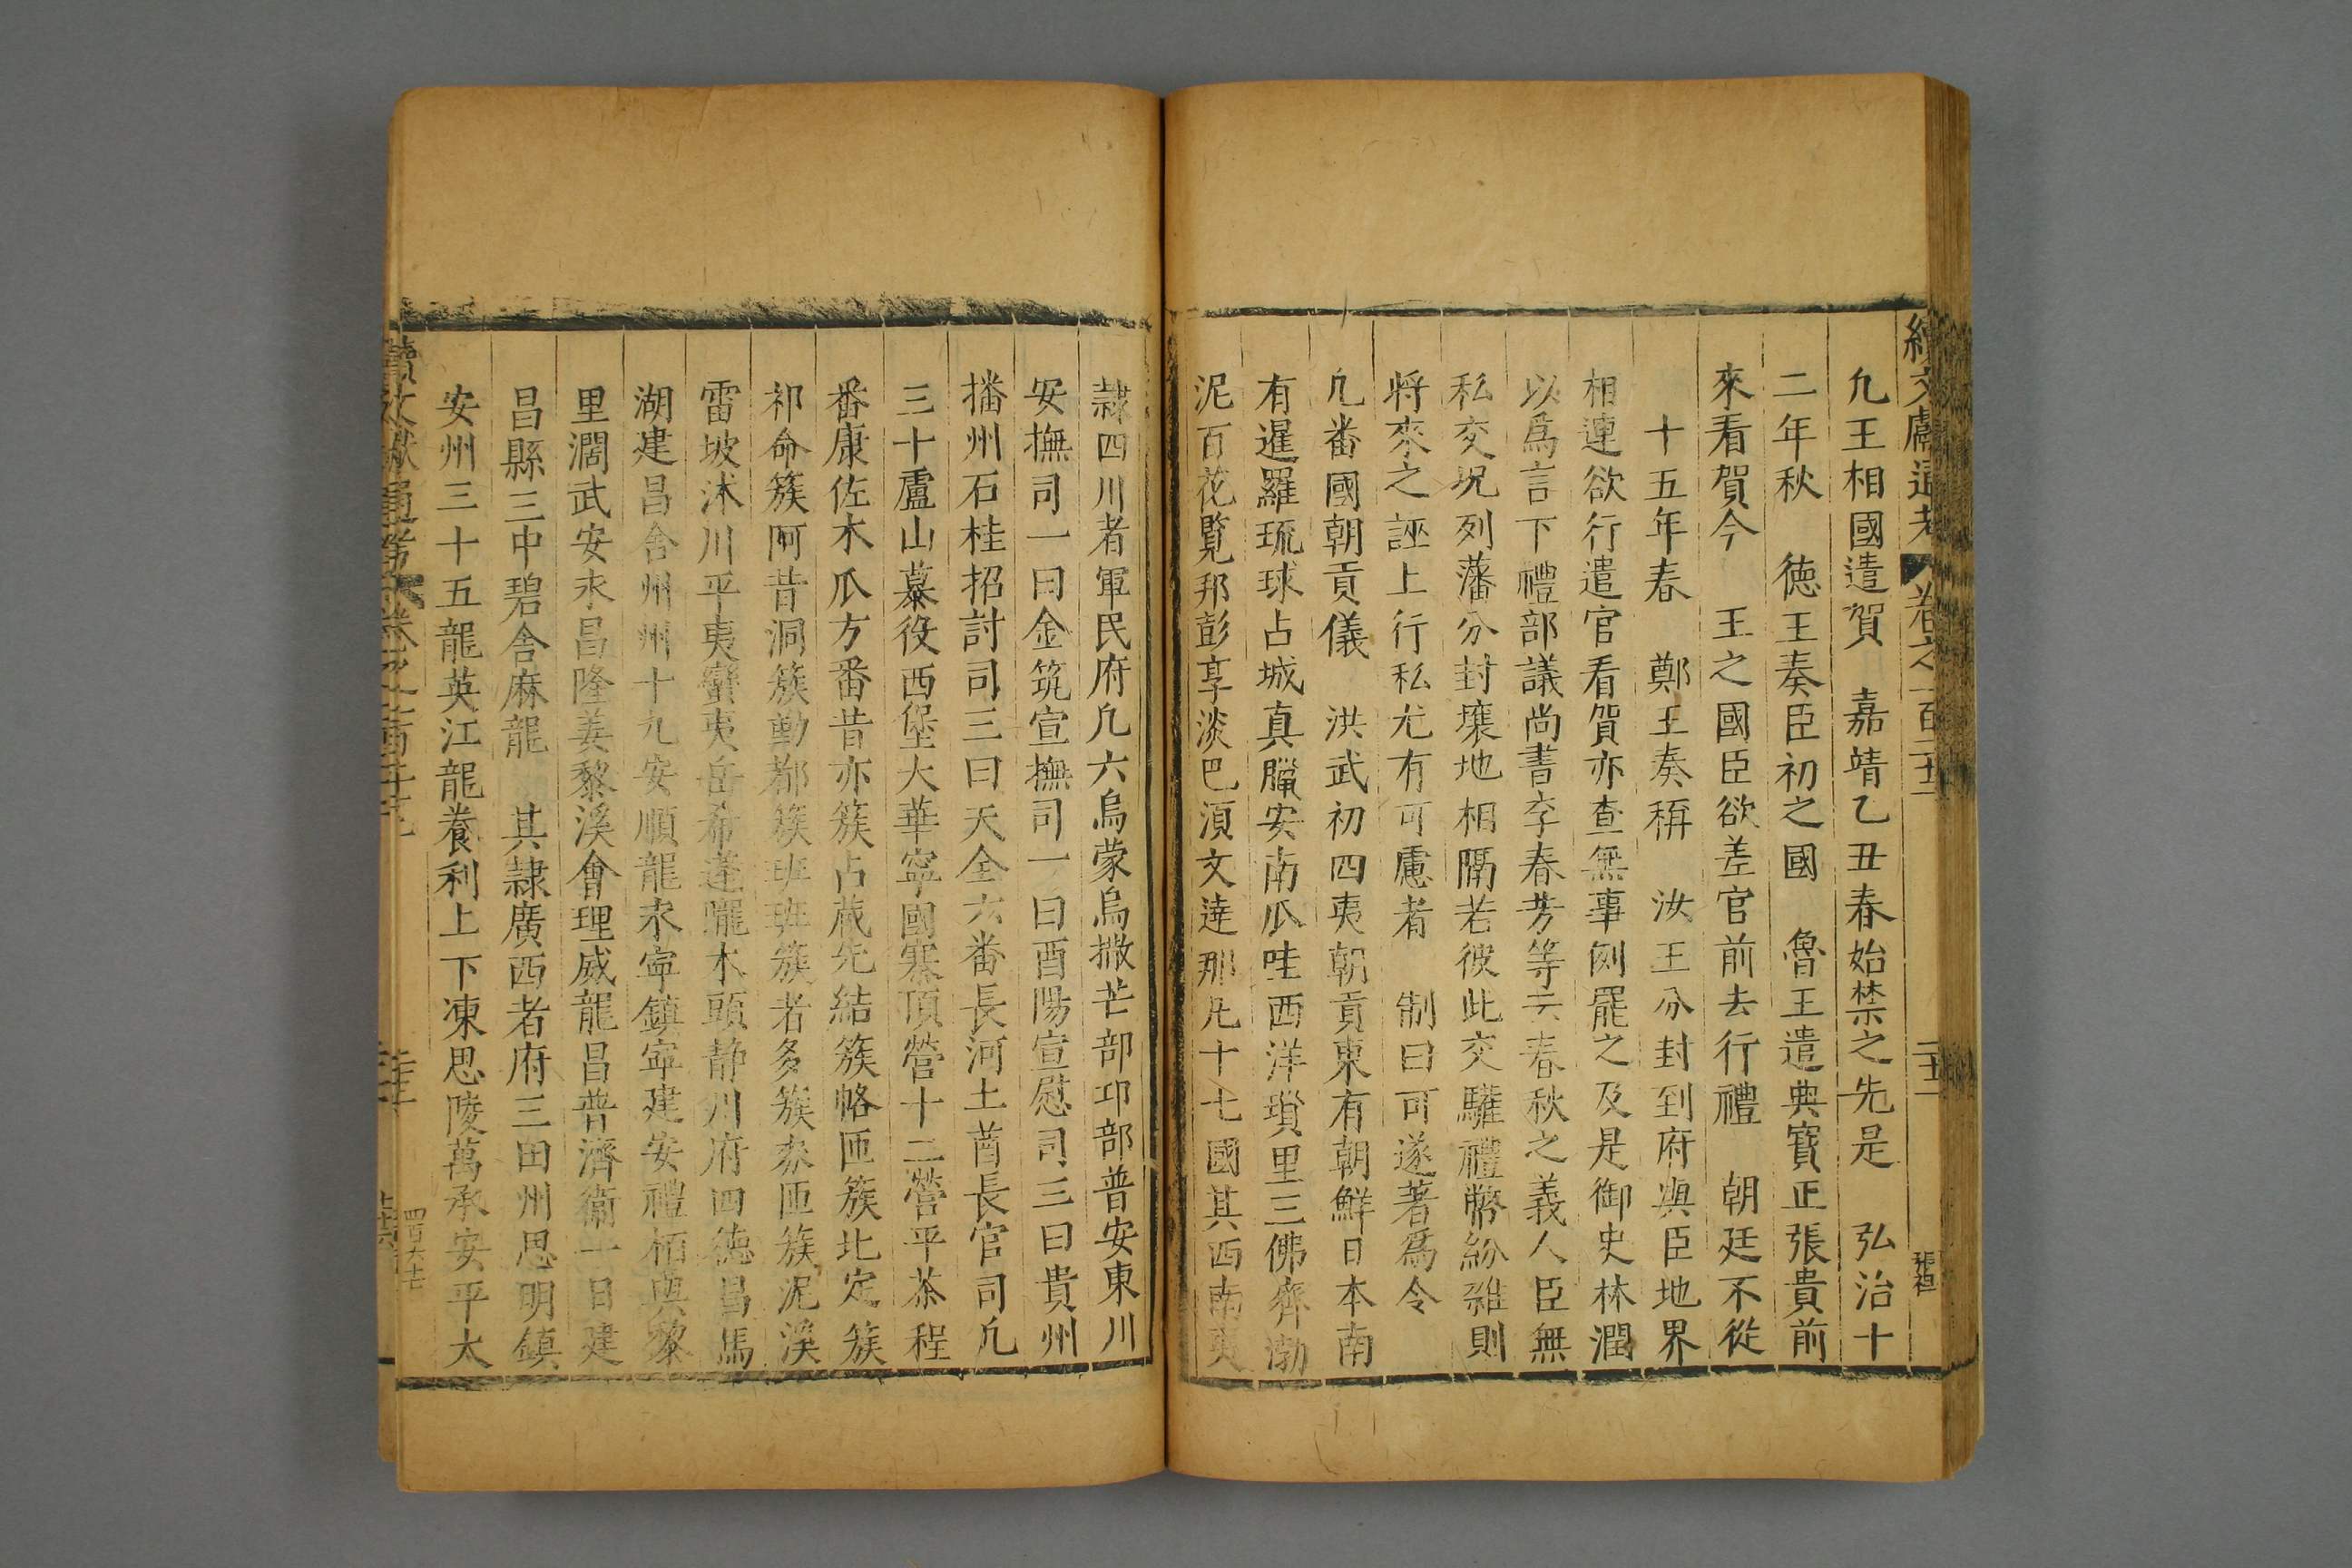 九王相國遣賀　嘉靖乙丑春始禁之先是　弘治十
二年秋　德王奏臣初之國　魯王遣典寳正張貴前
來看賀今　王之國臣欲差官前去行禮　朝廷不從
十五年春　鄭王奏稱　汝王分封到府與臣地界
相連欲行遣官看賀亦查無事例罷之及是御史林潤
以爲言下禮部議尚書李春芳等云春秋之義人臣無
私交况列藩分封壤地相隔若彼此交驩禮幣紛雜則
將來之誣上行私尤有可慮者　制曰可遂著爲令
凢番國朝貢儀　洪武初四夷朝貢東有朝鮮日本南
有暹羅琉球占城真臘安南瓜哇西洋瑣里三佛齊渤
泥百花覽邦彭亨淡巴湏文達那凢十七國其西南夷
隸四川者軍民府凢六烏蒙烏撒芒部邛部普安東川
安撫司一曰金筑宣撫司一曰酉陽宣慰司三曰貴州
播州石桂招討司三曰天全六番長河土酋長官司凢
三十盧山慕役西堡大華寧國寨頂營十二營平茶程
番康佐木瓜方番昔亦簇占藏先結簇㖞匝簇北定簇
祁命簇阿昔洞簇勤都簇班班簇者多簇麥匝簇泥溪
雷坡沐川平夷蠻夷岳希蓬隴木頭静州府四德昌馬
湖建昌舍州州十九安順龍永寧鎮寧建安禮栢興黎
里濶武安永昌隆姜黎溪會理威龍昌普濟衞一曰建
昌縣三中碧舍麻龍　其隸廣西者府三田州思明鎮
安州三十五龍英江龍養利上下凍思陵萬承安平太